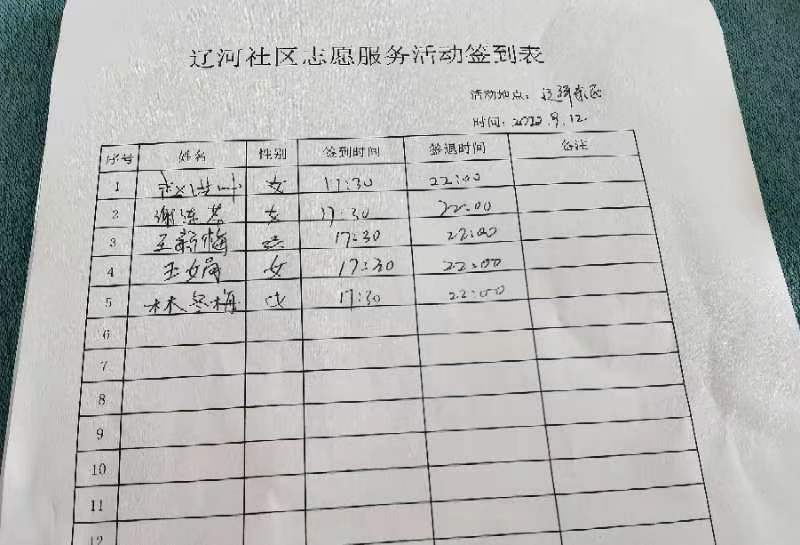 辽河社区志愿服务活动签到表
活动地点：
时间：2022.9.12
序号 姓名 性别 签到时间 签退时间 备注
1 女 17:30 22:00
2 谢连芬 女 17:30 22:00
3 王新梅 女 17:30 22:00
4 王文娟 女 17:30 22:00
5 林冬梅 女 17:30 22:00
6
7
8
9
10
11
12